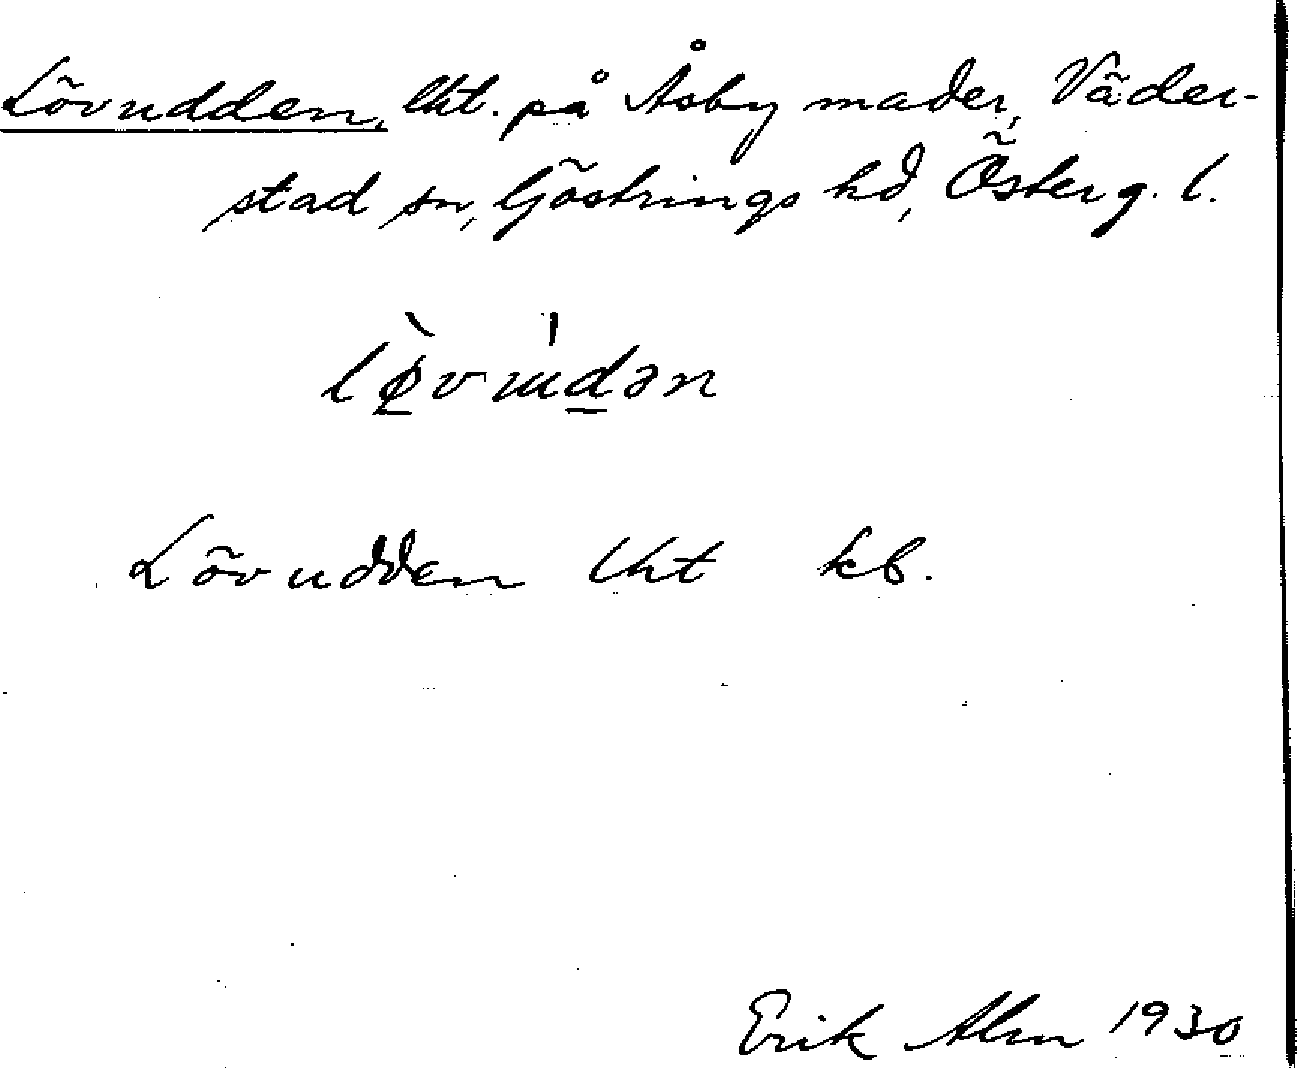 Lövudden, lht. på Åsby mader, Väder-
stad sn, Göstrings hd, Österg. l.
lø̀vɯ́dən
Lövudden lht kb.
Erik Alm 1930